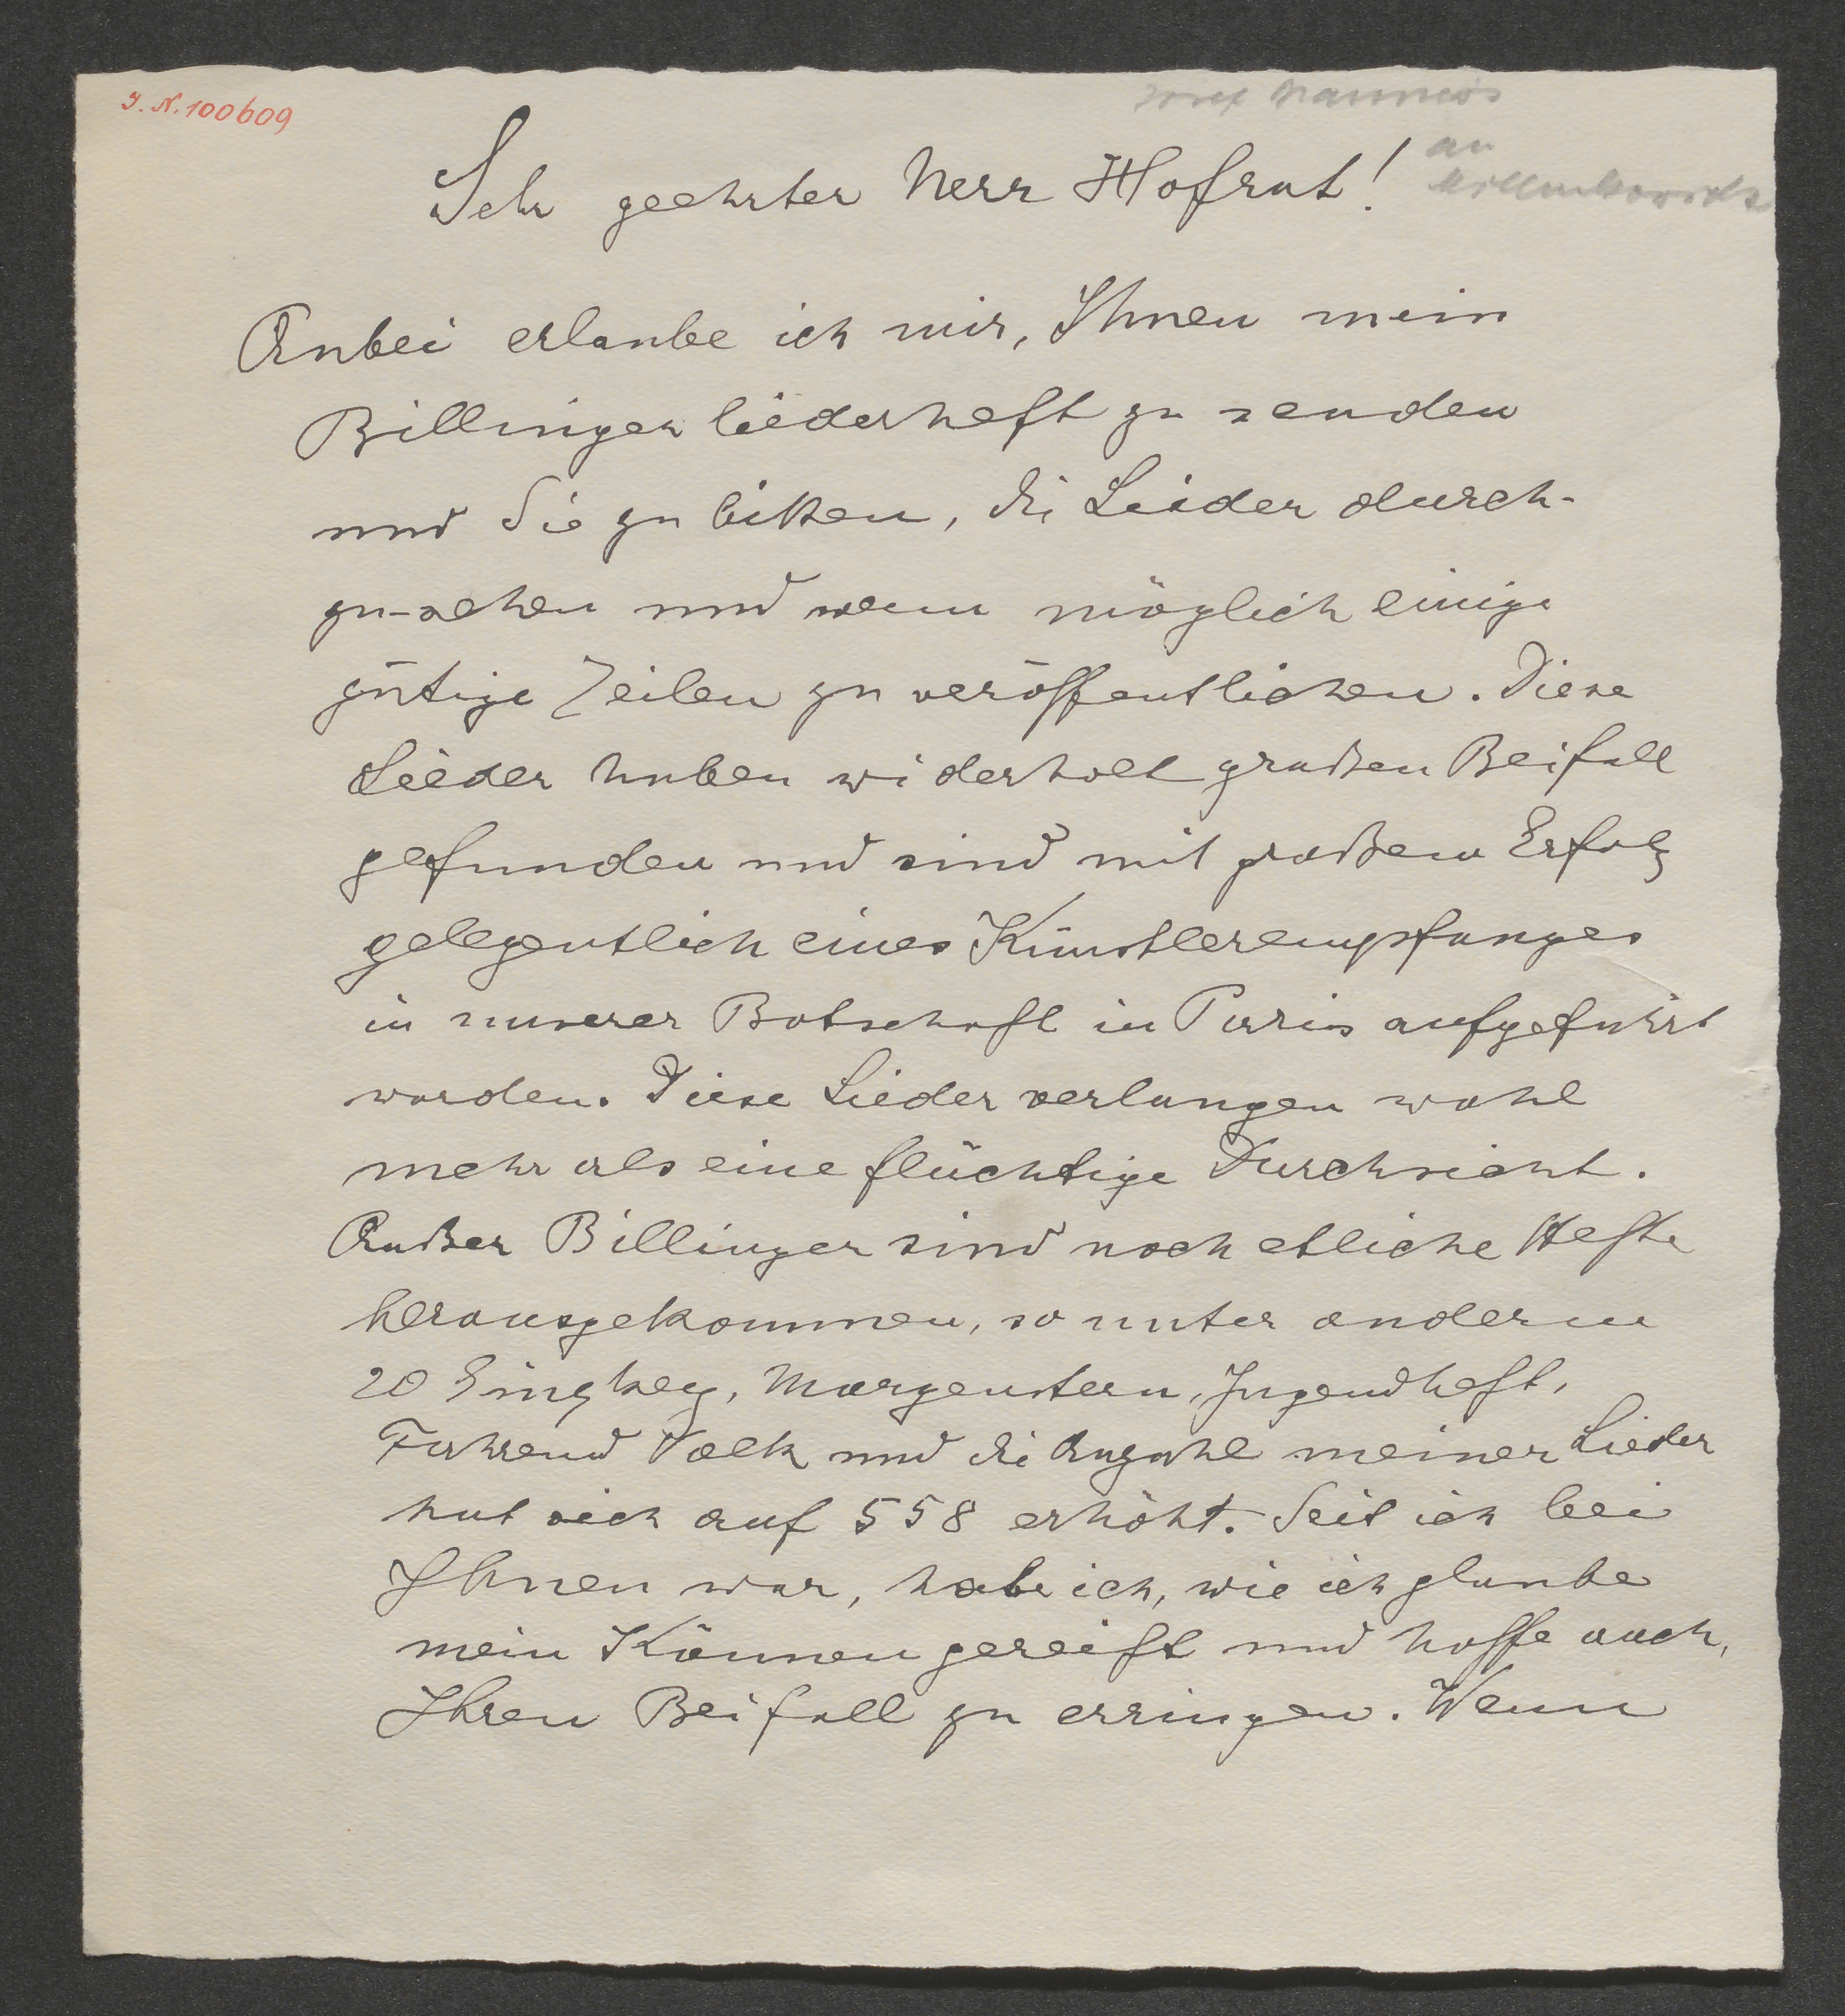 J. N. 100609
Josef
an
Millenkovich
Sehr geehrter Herr Hofrat!
Anbei erlaube ich mir, Ihnen mein
Billinger liederheft zu senden
und Sie zu bitten, di Lieder durch-
zu-sehen und wenn möglich einige
gütige Zeilen zu veröffentlichen. Diese
Lieder haben widerholt großen Beifall
gefunden und sind mit großem Erfolg
gelegentlich eines Künstlerempfanges
in unserer Botschaft in Paris aufgeführt
worden. Diese Lieder verlangen wohl
mehr als eine flüchtige Durchsicht.
Außer Billinger sind noch etliche Hefte
herausgekommen, so unter anderm
20 Ginzkey, Morgenstern, Jugendheft,
Fahrend Volk und di Anzahl meiner Lieder
hat sich auf 558 erhöht. Seit ich bei
Ihnen war, habe ich, wie ich glaube
mein Können gereift und hoffe auch,
Ihren Beifall zu erringen. Wenn